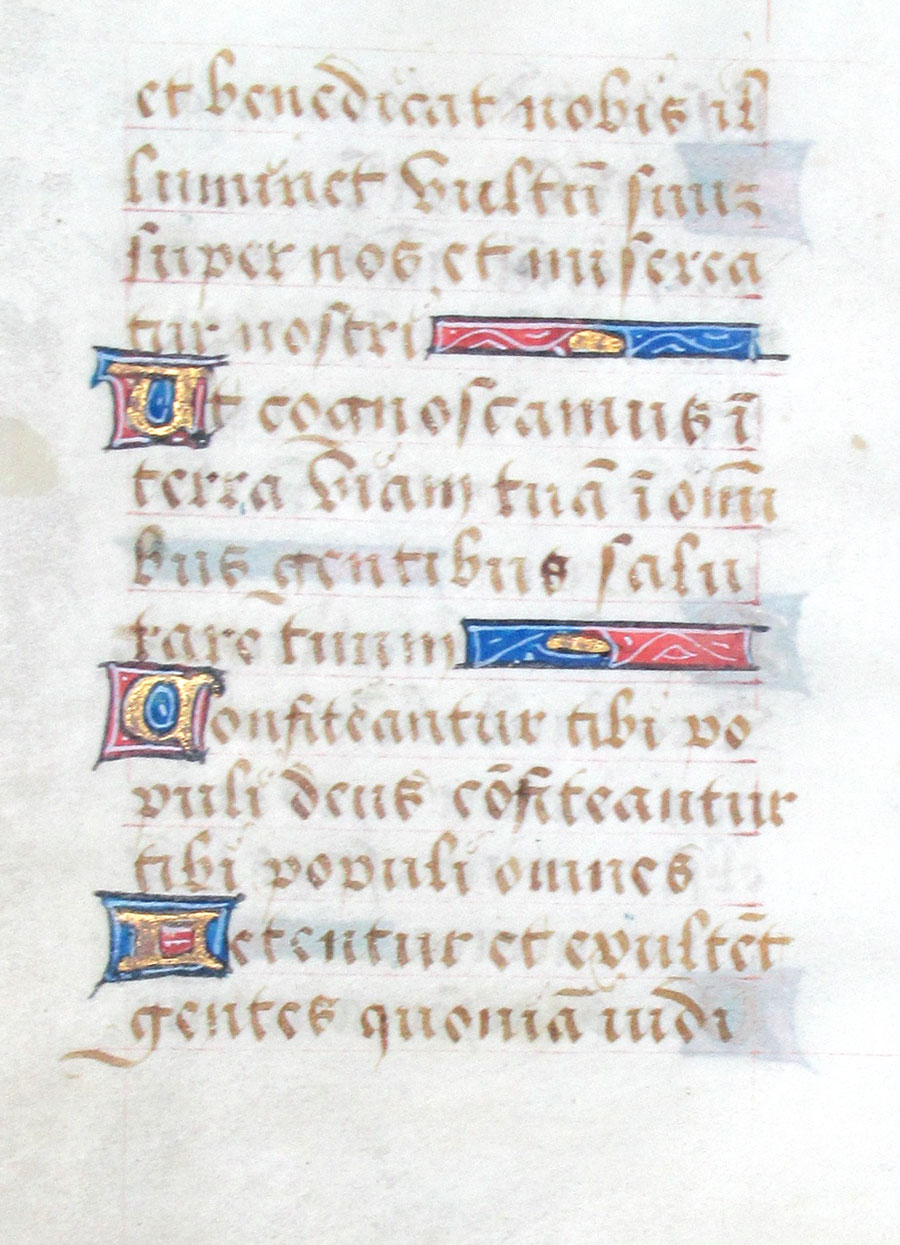 et benedicat nobis il
luminet vultū suuʒ
super nos et miserea
tur nostri
Ut cognoscamus ī
terra viam tuā ī omī
bus gentibus salu
tare tuum
Confiteantur tibi po
puli deus cōfiteantur
tibi populi omnes
Letentur et exultēt
gentes quoniā iudi